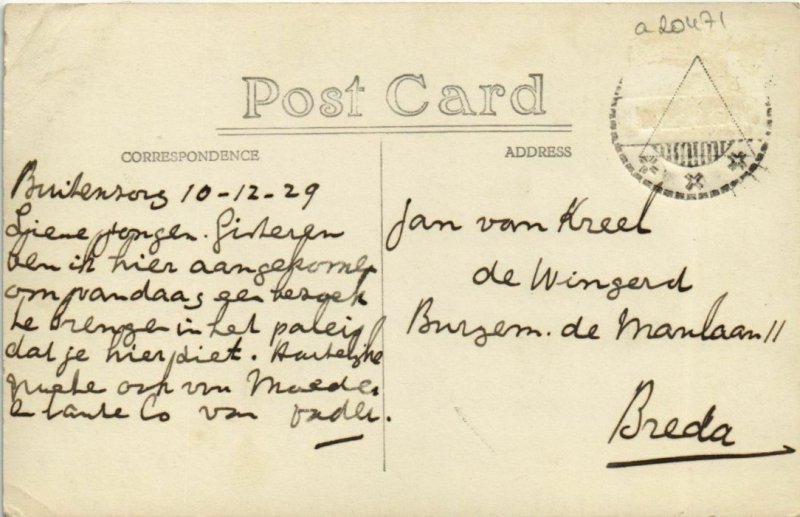 a20471
Post Card
CORRESPONDENCE
ADDRESS
Buitenzorg 10-12-29
jongen. Gisteren
ben ik hier aangekomen
om vandaag een bezoek
te brengen in het paleis
dat je hier ziet. Hartelijke
ook van Moeder
e tante Co van vader.
Jan van Kreel
de Wingerd
Burgem. de Manlaan 11
Breda